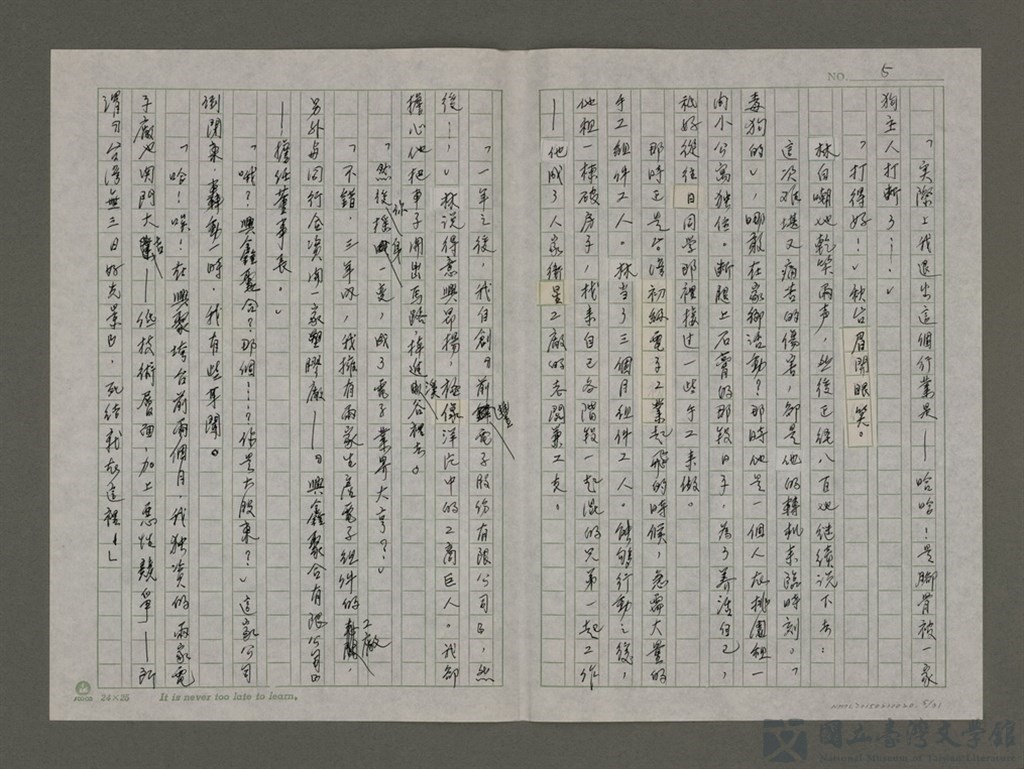 NO. 5
「實際上我退出這個行業是——哈哈!是腳骨被一家
狗主人打斷了…。」
「打得好!」秋台眉開眼笑。
林白嘲地乾笑兩声,然後正経八百地继續说下去:
這次难堪又痛苦的傷害,却是他的轉机來臨時刻。「
毒狗的」,哪敢在家鄉活動?那時他是一個人在桃園租一
间小公寓独住。断腿上石膏的那段日子,為了养活自己,
祇好從往日同學那裡接过一些手工來做。
那時正是台湾初級電子工業起飛的時候,急需大量的
手工組件工人。林当了三個月組件工人。能夠行動之後,
他租一棟破房子,找来自己各階段一起混的兄弟一起工作
——他成了人家衛星工廠的老闆兼工友。
「一年之後,我自創『前豐電子股份有限公司』,然
後……」林说得意興昂揚,極像洋片中的工商巨人。我却
擔心他把車子開出馬路,掉進溪谷裡去。
「然後搖身一变,成了電子業界大亨?」
「不錯,三年以,我擁有兩家生產電子組件的工廠,
另外与同行合资開一家塑膠廠——『興鑫聚合有限公司』
——擔任董事長。」
「哦?興鑫聚合?那個……?你是大股東?」這家公司
倒閉案,轟動一時,我有些耳聞。
「哈!嘆!在興聚垮台前兩個月,我独资的兩家電
子廠也関門大吉——低技術層面,加上恶性競爭——所
谓『台湾無三日好光景』,死结就在這裡!」
24×25 It is never too late to learn.
NMTL20150210020, 5/01
國立臺灣文學館
National Museum of Taiwan Literature